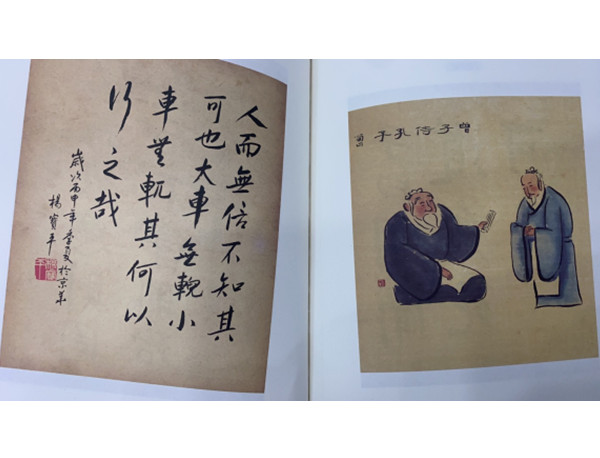 人而無信不知其
可也大車無輗小
車無軏其何以
行之哉
歲次丙申年季夏於京華
楊平
曾子侍孔子